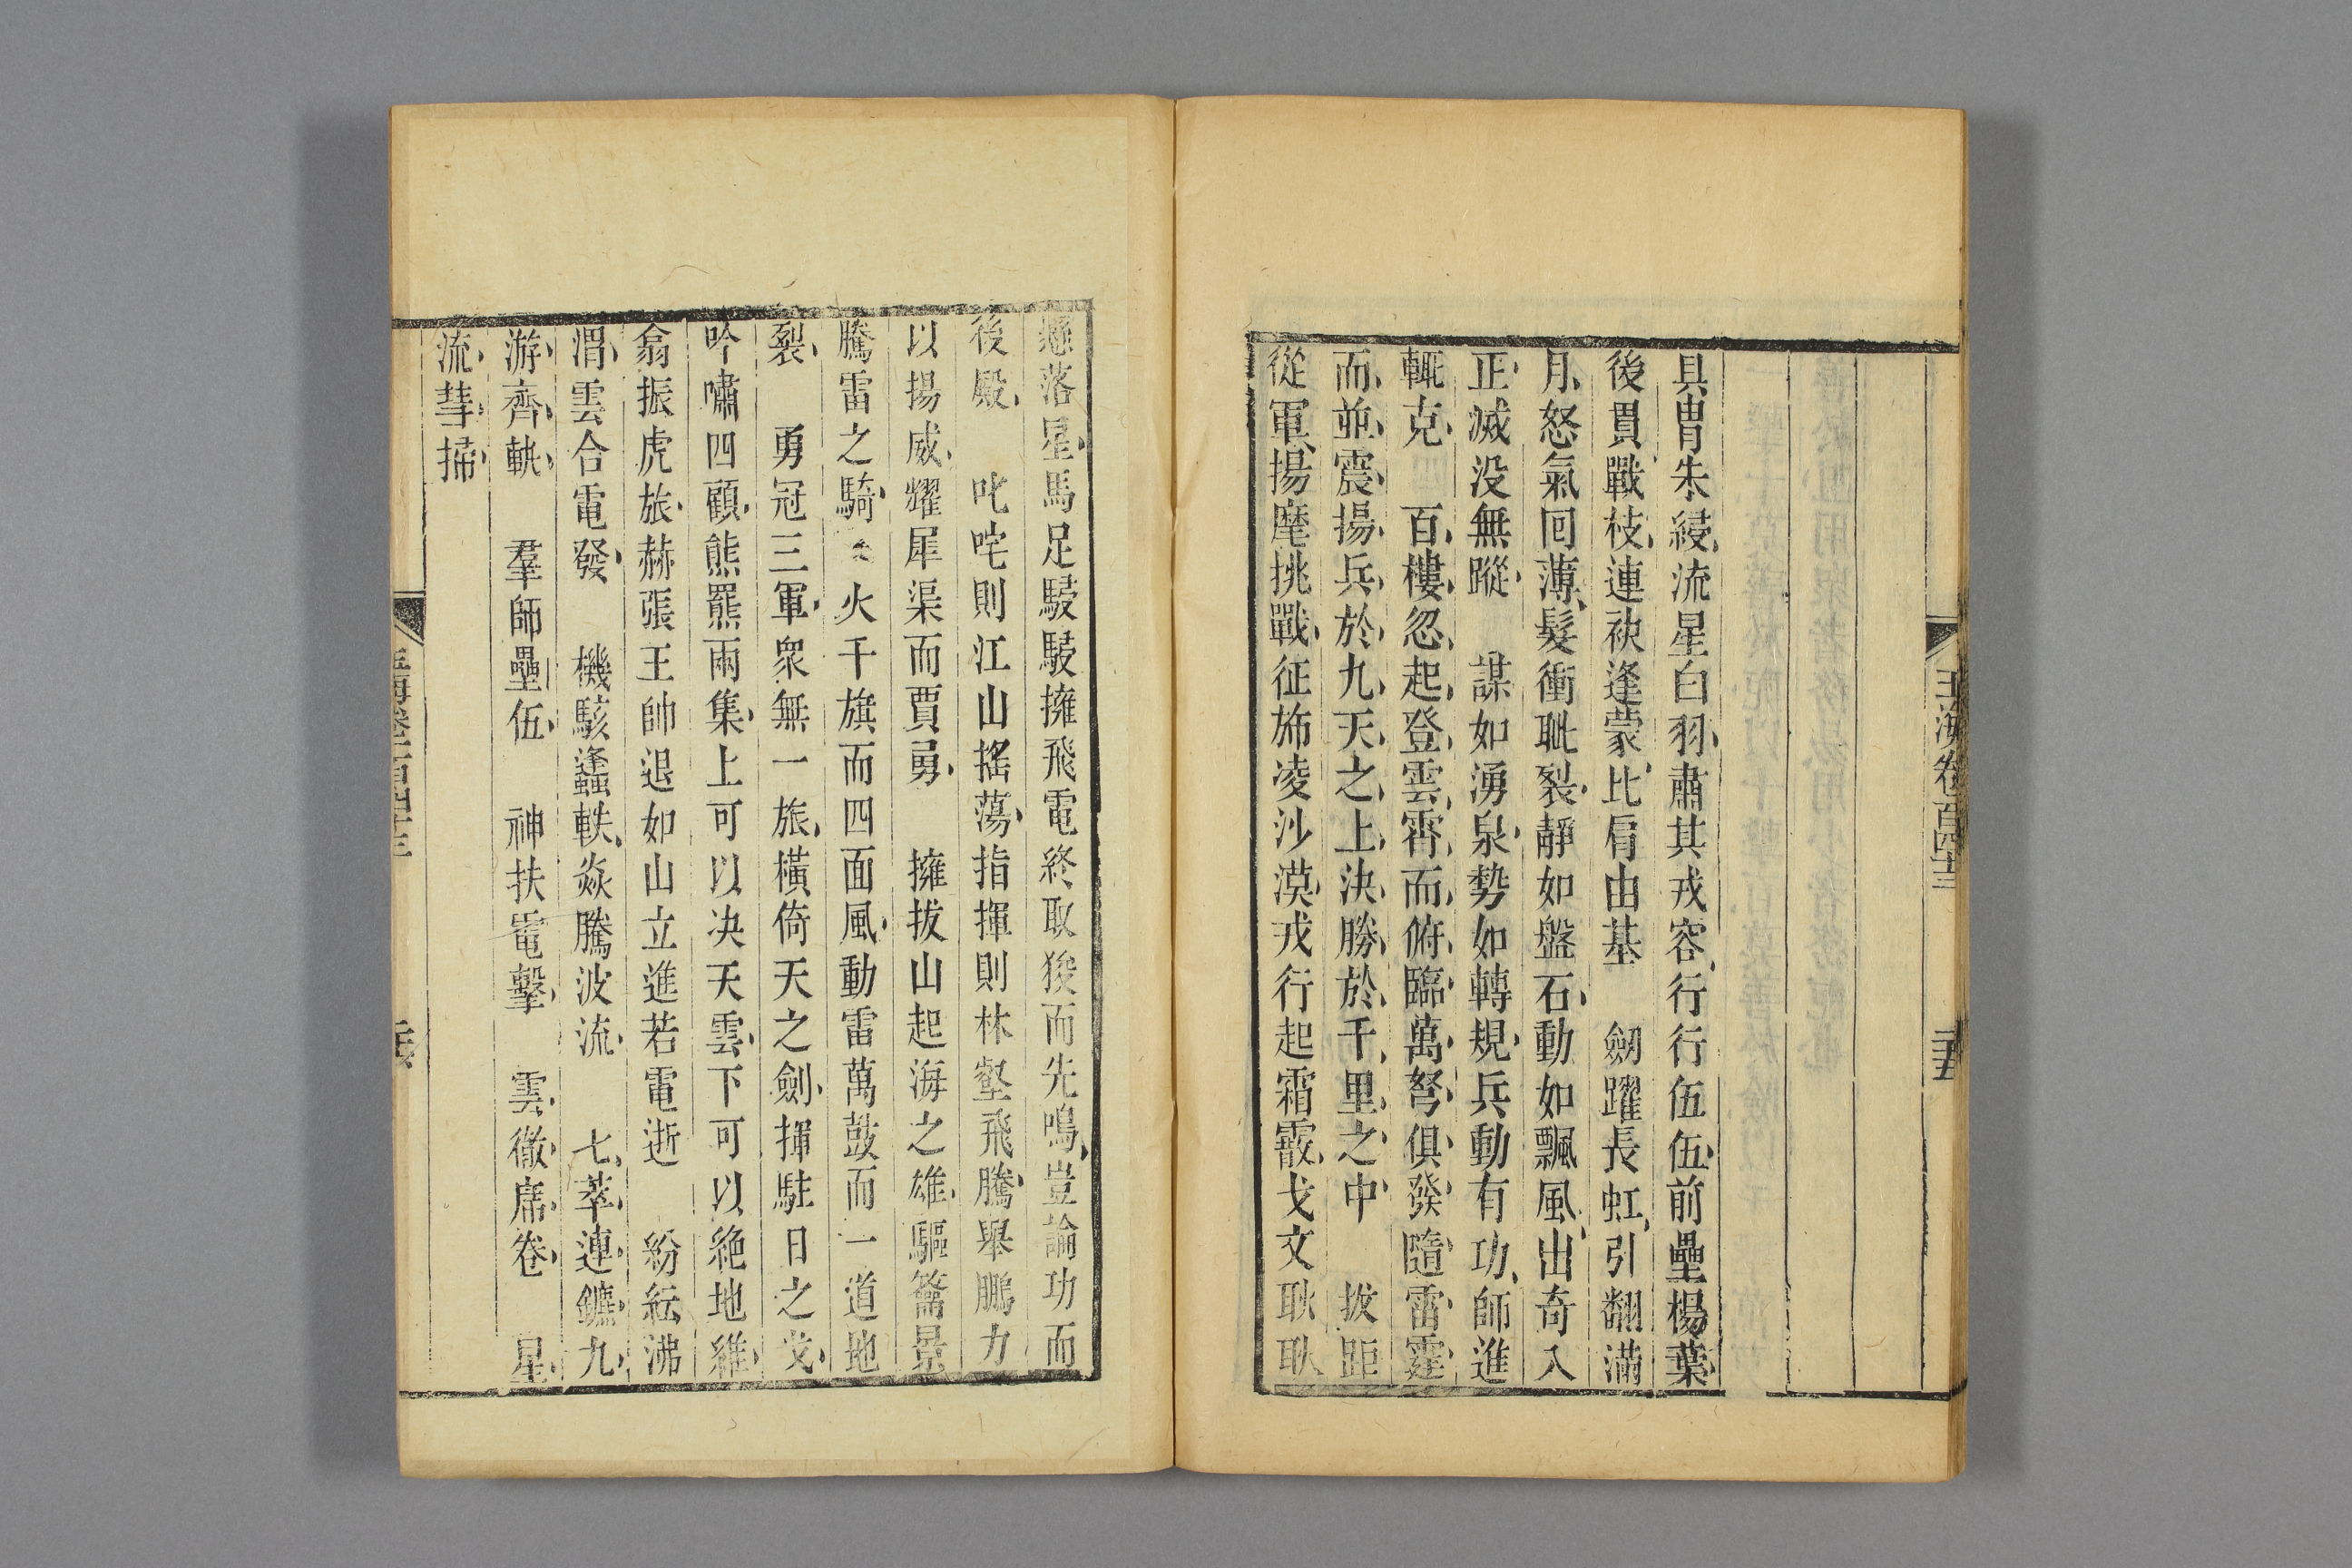 玉海卷百四十三
三十五
具冑朱綅流星白羽肅其戎容行行伍伍前壘楊葉
後貫戰枝連袂逢蒙比肩由基 劒躍長虹引翻滿
月怒氣囘薄髮衝眦裂靜如盤石動如飄風出奇入
正滅没無蹤 謀如湧泉勢如轉規兵動有功師進
輒克 百樓忽起登雲霄而俯臨萬弩俱發隨雷霆
而並震揚兵於九天之上決勝於千里之中 拔距
從軍揚麾挑戰征斾凌沙漠戎行起霜霰戈文耿耿
懸落星馬足駸駸擁飛電終取狻而先鳴豈論功而
後殿 叱咤則江山搖蕩指揮則林壑飛騰舉鵬力
以揚威耀犀渠而賈勇 擁拔山起海之雄驅籋景
騰雷之騎 火千旗而四面風動雷萬鼓而一道地
裂 勇冠三軍衆無一旅橫倚天之劍揮駐日之戈
吟嘯四顧熊羆雨集上可以决天雲下可以絶地維
翕振虎旅赫張王帥退如山立進若電逝 紛紜沸
渭雲合電發 機駭蠭軼焱騰波流 七萃連鑣九
游齊軼 羣師壘伍 神扶電擊 雲徹席卷 星
流彗掃
玉海卷一百四十三